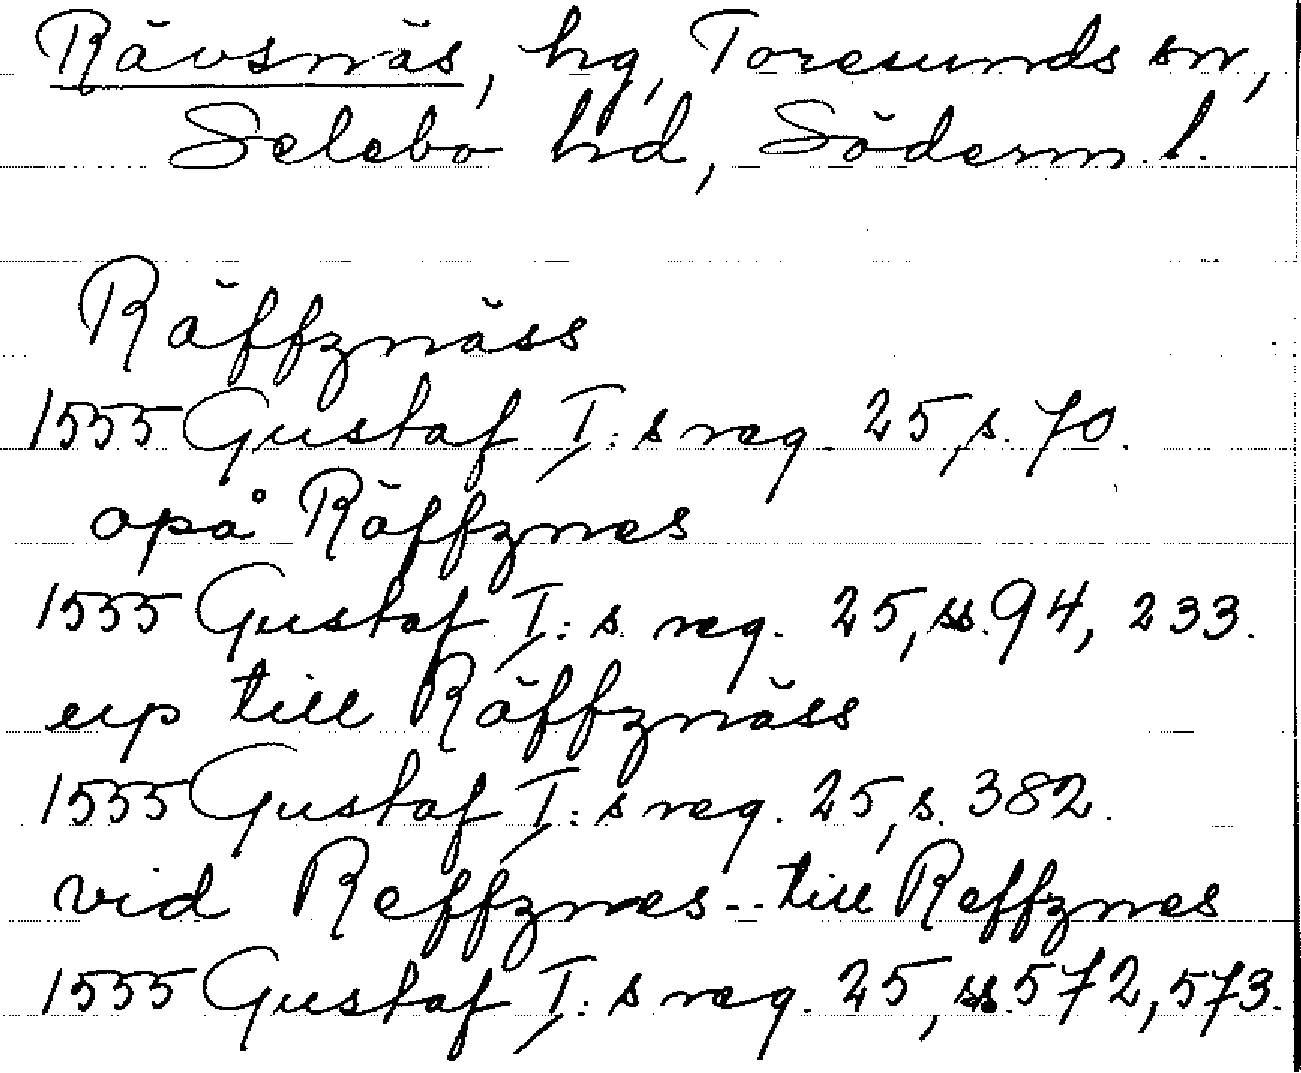 Rävsnäs, hg, Toresunds sn,
Selebo hd, Söderm. l.
Räffznäss
1555 Gustaf I:s reg. 25, s. 70.
opå Räffznes
1555 Gustaf I:s reg. 25, ss. 94, 233.
up till Räffznäss
1555 Gustaf I:s reg. 25, s. 382.
vid Reffznes -- till Reffznes
1555 Gustaf I:s reg. 25, ss. 572, 573.